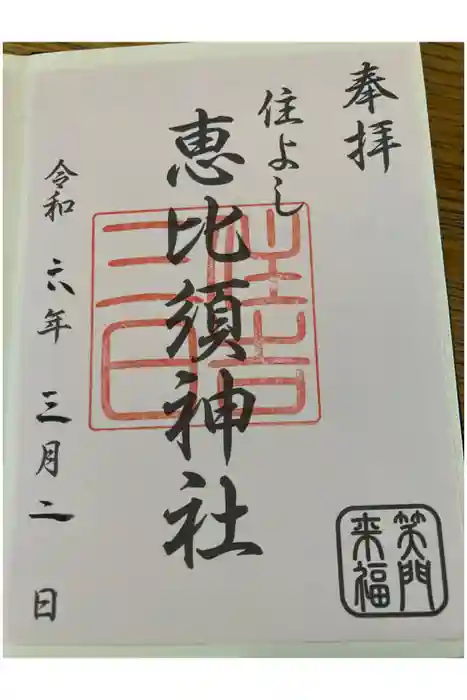 奉拝
住よし
恵比須神社
令和六年三月二日
笑門
来福
住吉